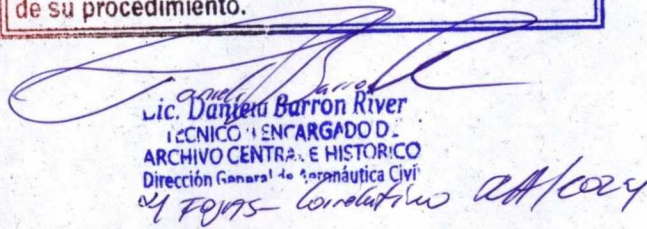 de su procedimiento.
Lic. Daniela Barron River
TECNICO ENCARGADO D
ARCHIVO CENTRAL E HISTORICO
Dirección General de Aeronáutica Civi
Fojas